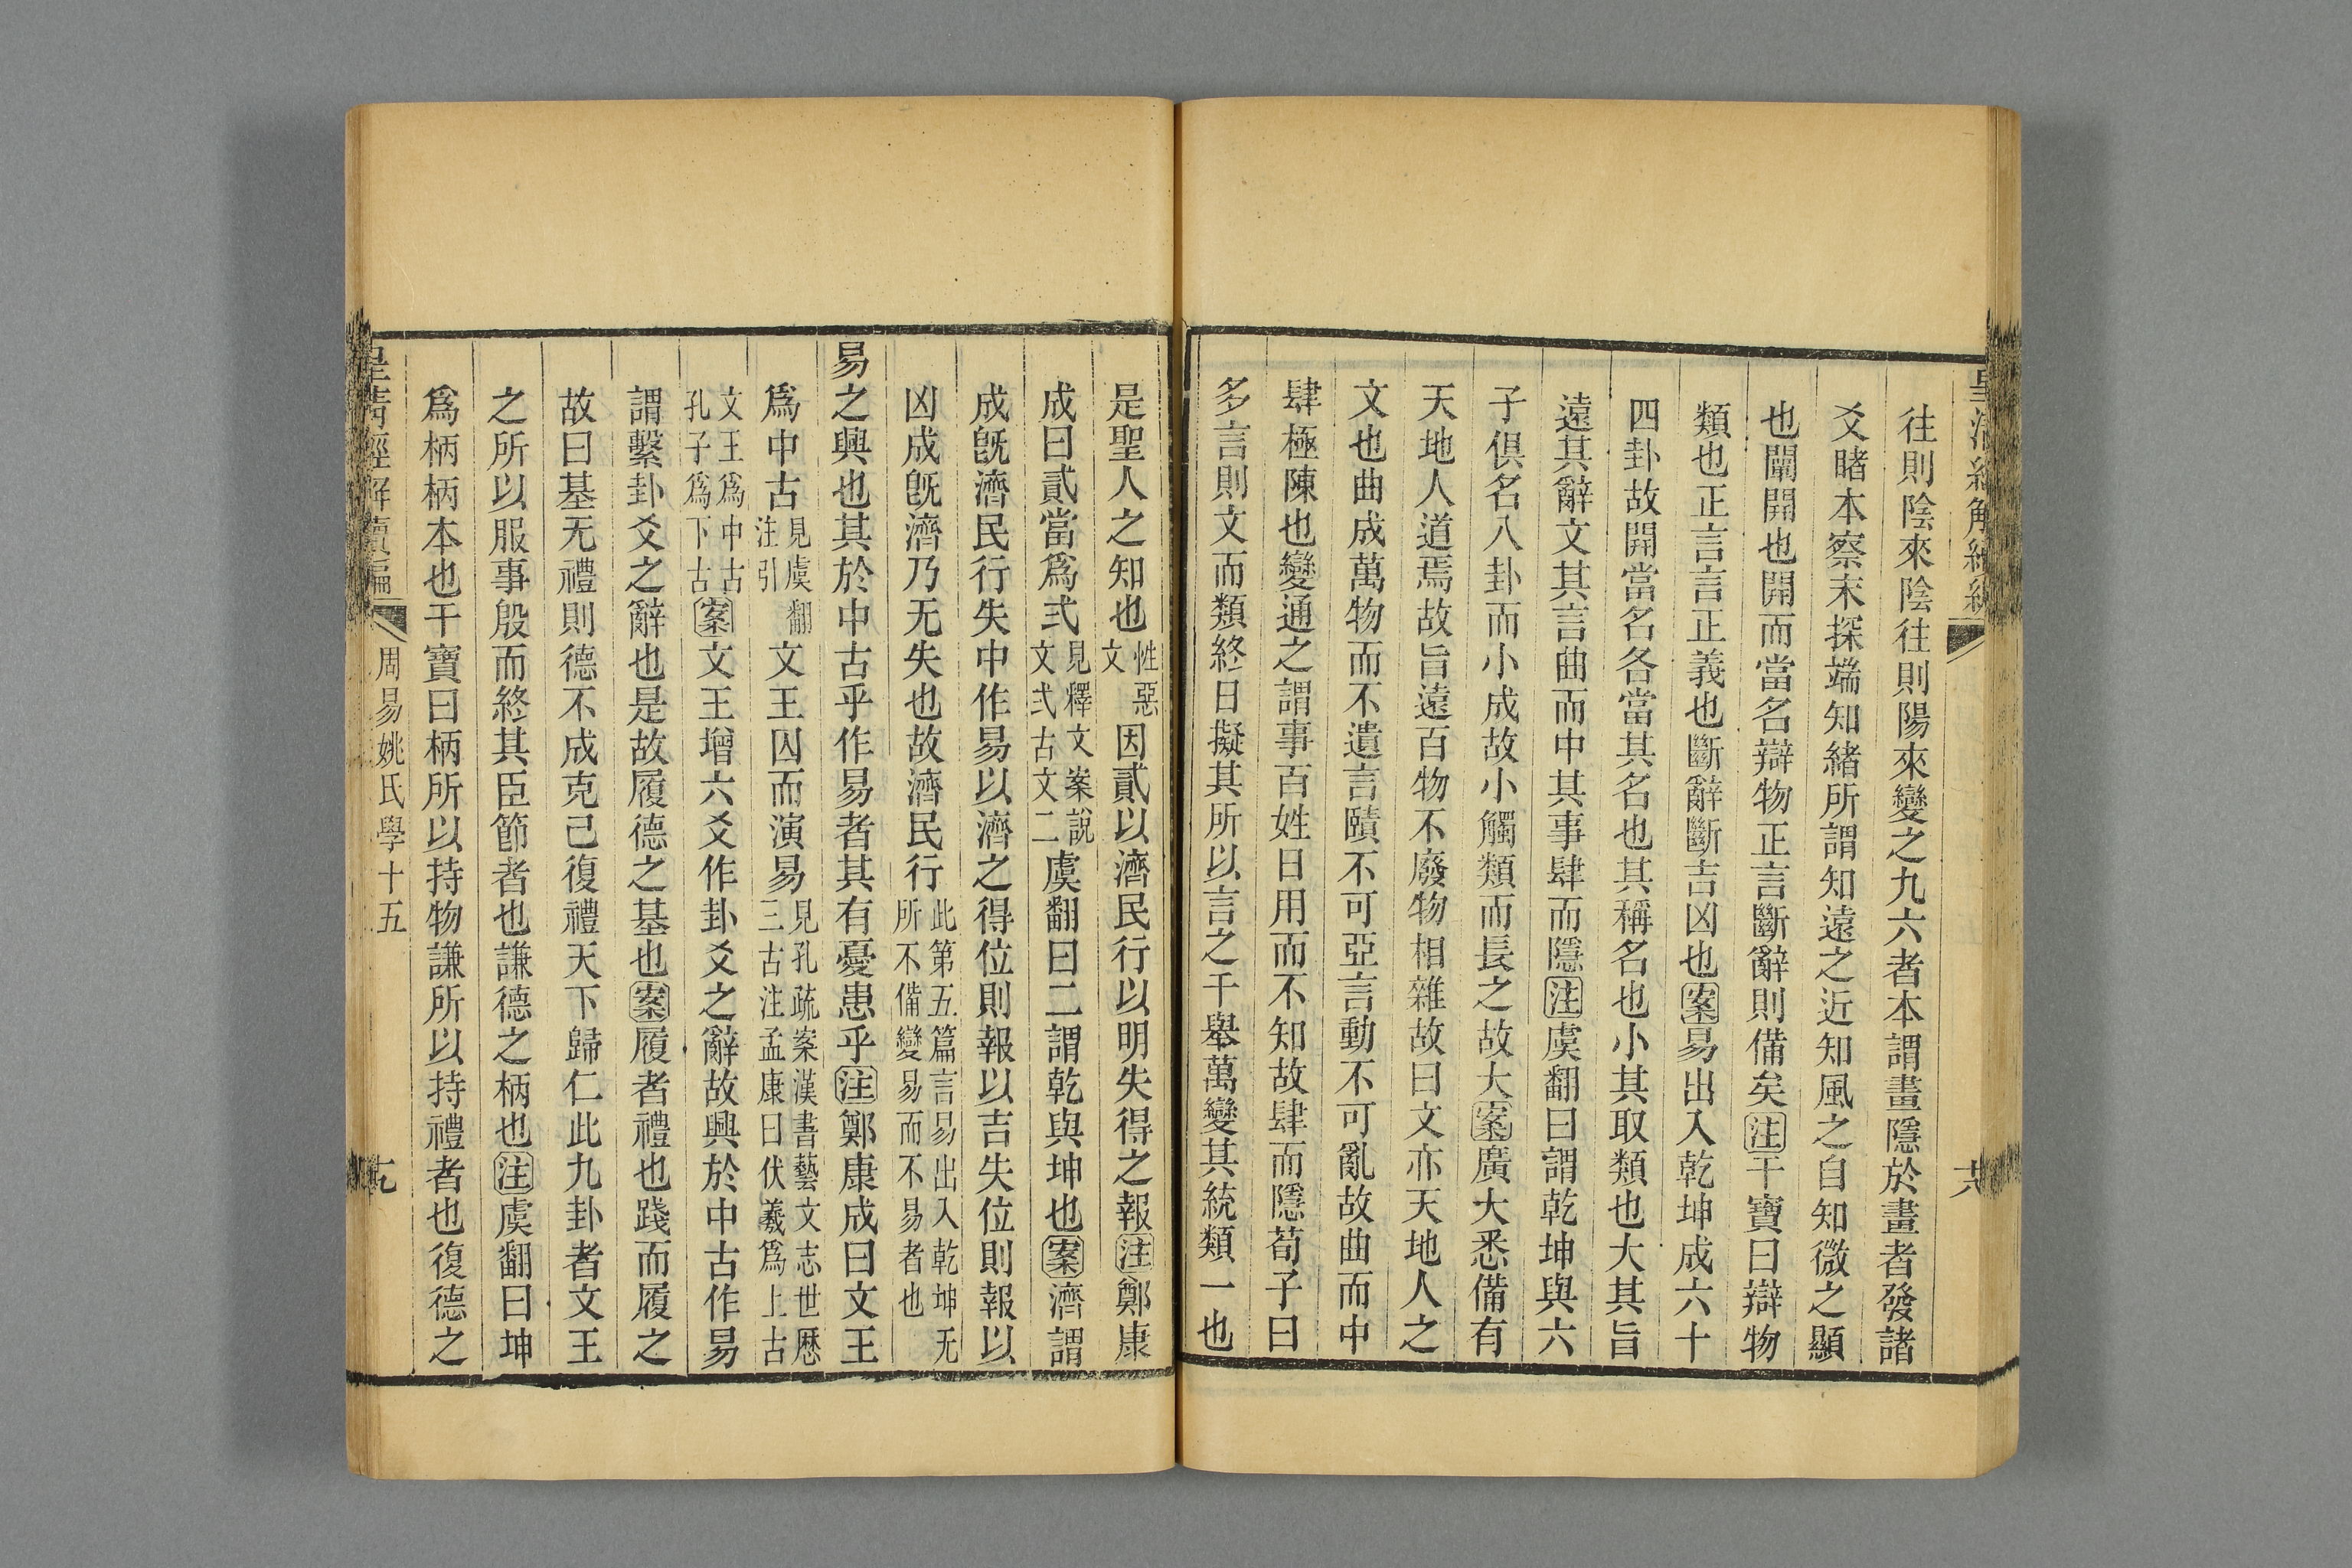 往則陰來陰往則陽來變之九六者本謂畫隱於畫者發諸
爻睹本察末探端知緒所謂知遠之近知風之自知微之顯
也闡開也開而當名辯物正言斷辭則備矣注干寶曰辯物
類也正言言正義也斷辭斷吉凶也案易出入乾坤成六十
四卦故開當名各當其名也其稱名也小其取類也大其旨
遠其辭文其言曲而中其事肆而隱注虞翻曰謂乾坤與六
子俱名八卦而小成故小觸類而長之故大案廣大悉備有
天地人道焉故旨遠百物不廢物相雜故曰文亦天地人之
文也曲成萬物而不遺言賾不可亞言動不可亂故曲而中
肆極陳也變通之謂事百姓日用而不知故肆而隱荀子曰
多言則文而類終日擬其所以言之千舉萬變其統類一也
是聖人之知也性惡文因貳以濟民行以明失得之報注鄭康
成曰貳當為弍見釋文案說文弍古文二虞翻曰二謂乾與坤也案濟謂
成旣濟民行失中作易以濟之得位則報以吉失位則報以
凶成旣濟乃无失也故濟民行此第五篇言易出入乾坤无所不備變易而不易者也
易之興也其於中古乎作易者其有憂患乎注鄭康成曰文王
為中古見虞翻注引文王囚而演易見孔疏案漢書藝文志世歷三古注孟康曰伏羲為上古
文王為中古孔子為下古案文王增六爻作卦爻之辭故興於中古作易
謂繫卦爻之辭也是故履德之基也案履者禮也踐而履之
故曰基无禮則德不成克己復禮天下歸仁此九卦者文王
之所以服事殷而終其臣節者也謙德之柄也注虞翻曰坤
為柄柄本也干寶曰柄所以持物謙所以持禮者也復德之
皇清經解續編
周易姚氏學十五